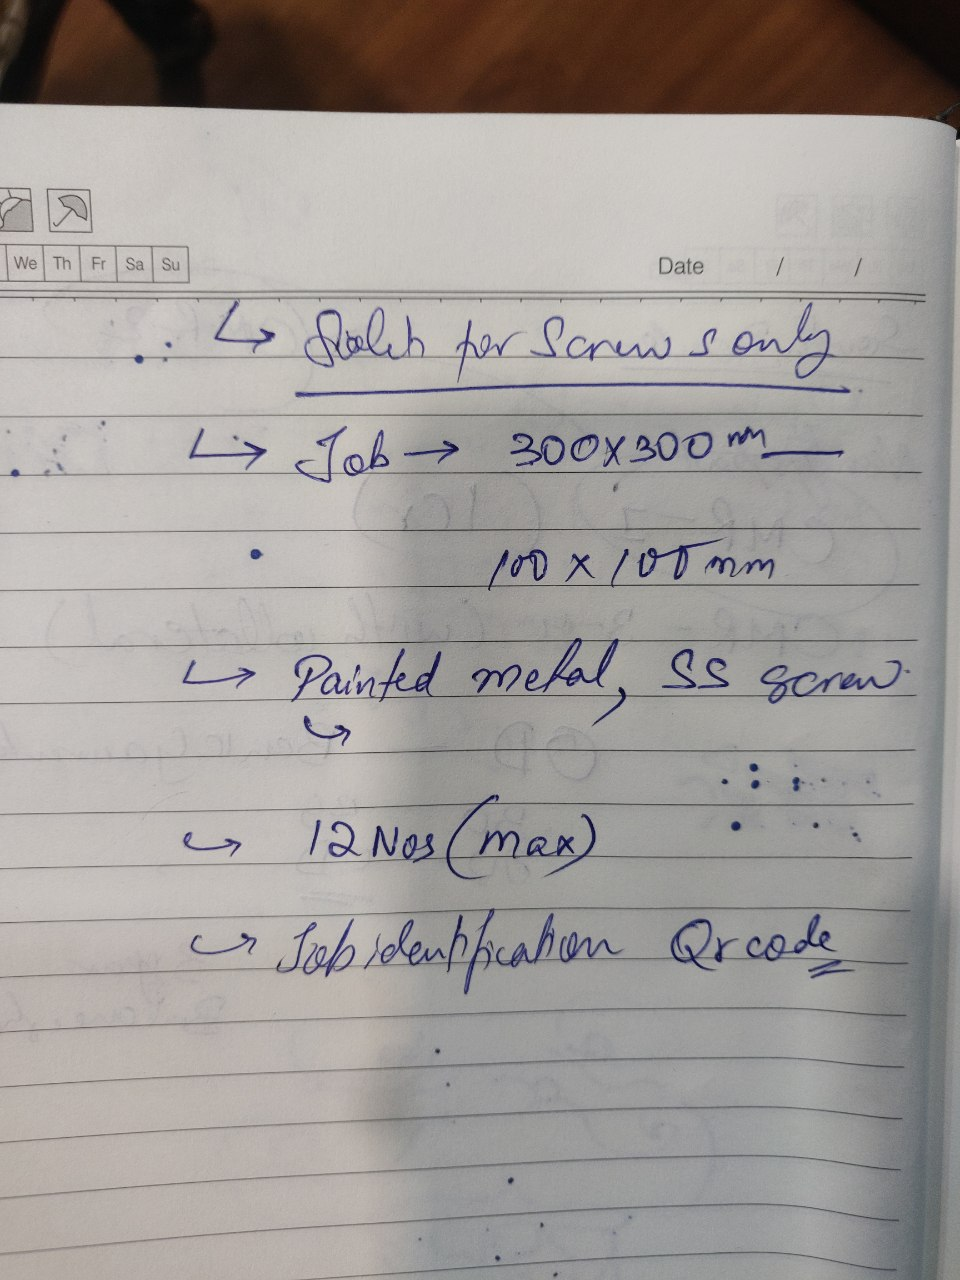 We Th Fr Sa Su
Date / /
↳ per Screws only
↳ Job → 300x300 mm
100 x 100 mm
↳ Painted metal, SS screw.
↳ 12 Nos (max)
↳ Job identification Qr code